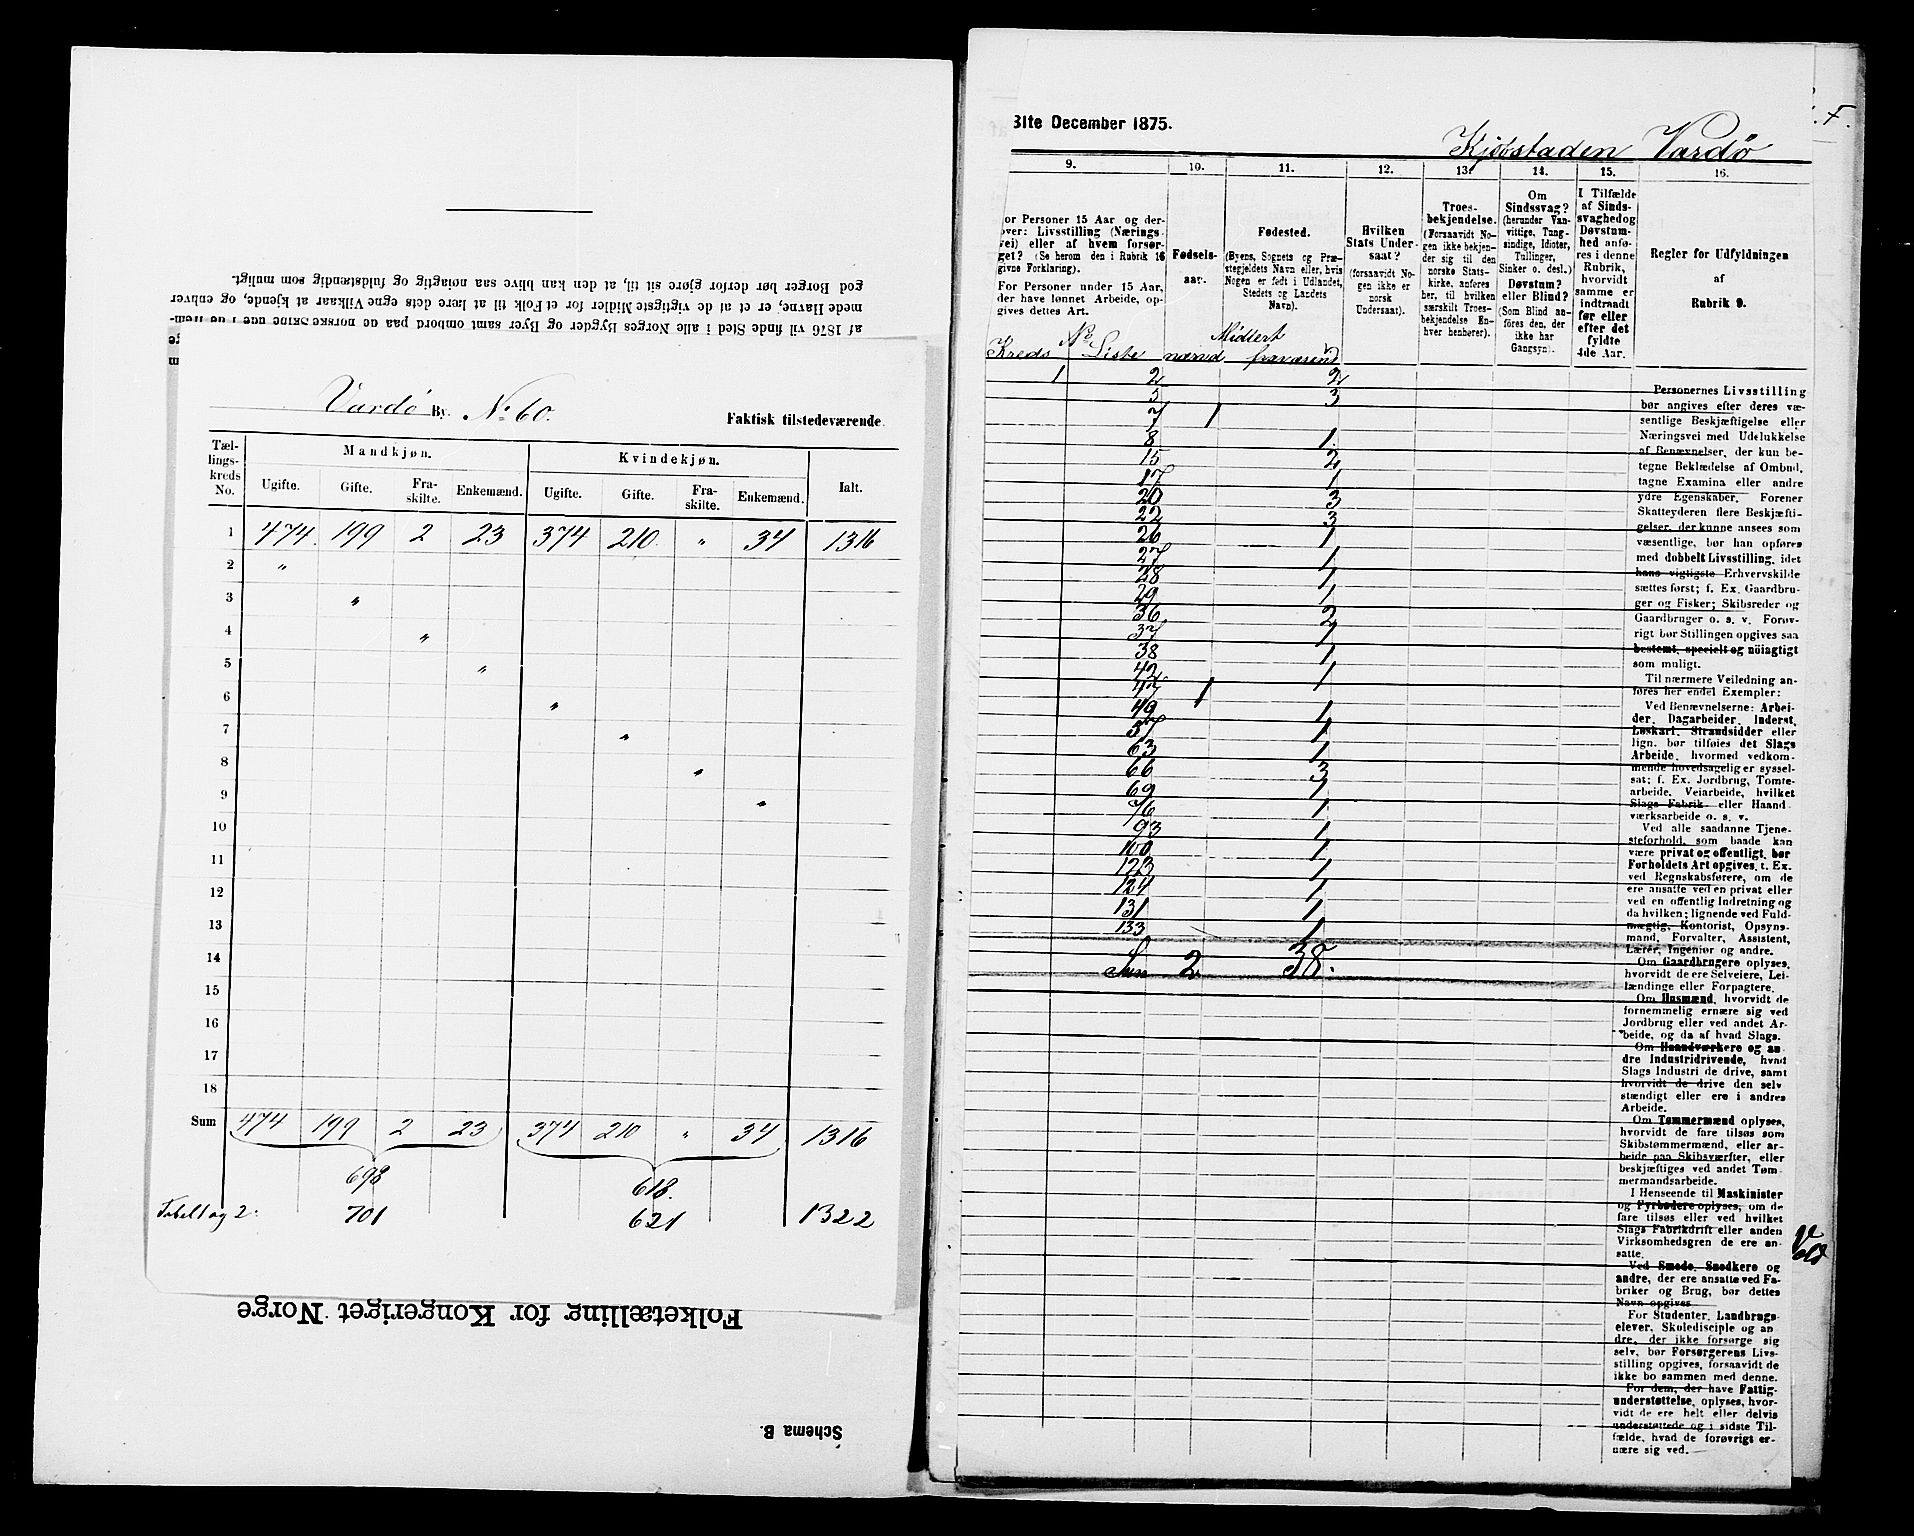 af 1876 vil finde Sted i alle Norges Bygder og Byer samt ombord paa de norske Skibe ude i de frem-
mede Havne, er et af de vigtigste Midler for et Folk til at lære dets egne Vilkaar at kjende, og enhver
god Borger bør derfor gjøre sit til, at den kan blive saa nøiagtig og fuldstændig som muligt.
Vardø By. No 60. Faktisk tilstedeværende.
Tæl-lings-kreds No. Mandkjøn. Kvindekjøn. Ialt.
Ugifte. Gifte. Fra-skilte. Enkemænd. Ugifte. Gifte. Fra-skilte. Enkemænd.
1 474. 199 2 23 374 210. " 34 1316
2 "
3 "
4 "
5 "
6 "
7 "
8 "
9 "
10
11
12
13
14
15
16
17
18
Sum 474 199 2 23 374 210 " 34 1316
698 618.
Tabellag 2. 701 621 1322
Folketælling for Kongeriget Norge
Schema B.
31te December 1875.
Kjøbstaden Vardø
9. 10. 11. 12. 13. 14. 15. 16.
For Personer 15 Aar og der-
over: Livsstilling (Nærings-
vei) eller af hvem forsør-
get? (Se herom den i Rubrik 16
givne Forklaring).
For Personer under 15 Aar,
der have lønnet Arbeide, op-
gives dettes Art.
Fødsels-
aar.
Fødested.
(Byens, Sognets og Præ-
stegjeldets Navn eller, hvis
Nogen er født i Udlandet,
Stedets og Landets
Navn).
Hvilken
Stats Under-
saat?
(forsaavidt No-
gen ikke er
norsk
Undersaat).
Troes-
bekjendelse.
(Forsaavidt No-
gen ikke bekjen-
der sig til den
norske Stats-
kirke, anføres
her, til hvilken
særskilt Troes-
bekjendelse En-
hver henhører).
Om
Sindssvag?
(herunder Van-
vittige, Tung-
sindige, Idioter,
Tullinger,
Sinker o. desl.)
Døvstum?
eller Blind?
(Som Blind an-
føres den, der
ikke har
Gangsyn).
I Tilfælde
af Sinds-
svaghed og
Døvstum-
hed anfø-
res i denne
Rubrik,
hvorvidt
samme er
indtraadt
før eller
efter det
fyldte
4de Aar.
Regler for Udfyldningen
af
Rubrik 9.
No Midlert
Kreds Liste nærvd fraværend
1 2 2
5 3
7 1
8 1.
15 2
17 1
20 3
22 3
26 1
27 1
28 1
29 1
36 2
37 1
38 1
42 1
47 1
49 1
57 1
63 1
66 3
69 1
76 1
93 1
100 1
123 1
124 1
131 1
133 1
Sum 2 38.
Personernes Livsstilling
bør angives efter deres væ-
sentlige Beskjæftigelse eller
Næringsvei med Udelukkelse
af Benævnelser, der kun be-
tegne Beklædelse af Ombud,
tagne Examina eller andre
ydre Egenskaber. Forener
Skatteyderen flere Beskjæfti-
gelser, der kunne ansees som
væsentlige, bør han opføres
med dobbelt Livsstilling, idet
hans vigtigste Erhvervskilde
sættes først; f. Ex. Gaardbru-
ger og Fisker; Skibsreder og
Gaardbruger o. s. v. Forøv-
rigt bør Stillingen opgives saa
bestemt, specielt og nöiagtigt
som muligt.
Til nærmere Veiledning an-
føres her endel Exempler:
Ved Benævnelserne: Arbei-
der, Dagarbeider, Inderst,
Løskarl, Strandsidder eller
lign. bør tilføies det Slags
Arbeide, hvormed vedkom-
mende hovedsagelig er syssel-
sat; f. Ex. Jordbrug, Tomte-
arbeide, Veiarbeide, hvilket
Slags Fabrik- eller Haand
værksarbeide o. s. v.
Ved alle saadanne Tjene-
steforhold, som baade kan
være privat og offentligt, bør
Forholdets Art opgives, t. Ex.
ved Regnskabsførere, om de
ere ansatte ved en privat eller
ved en offentlig Indretning og
da hvilken; lignende ved Fuld-
mægtig, Kontorist, Opsyns-
mand, Forvalter, Assistent,
Lærer, Ingeniør og andre.
Om Gaardbrugere oplyses,
hvorvidt de ere Selveiere, Lei-
lændinge eller Forpagtere.
Om Husmænd, hvorvidt de
fornemmelig ernære sig ved
Jordbrug eller ved andet Ar-
beide, og da af hvad Slags.
Om Haandværkere og an-
dre Industridrivende, hvad
Slags Industri de drive, samt
hvorvidt de drive den selv
stændigt eller ere i andres
Arbeide.
Om Tømmermænd oplyses,
hvorvidt de fare tilsøs som
Skibstømmermænd, eller ar-
beide paa Skibsværfter, eller
beskjæftiges ved andet Tøm-
mermandsarbeide.
I Henseende til Maskinister
og Fyrbødere oplyses, om de
fare tilsøs eller ved hvilket
Slags Fabrikdrift eller anden
Virksomhedsgren de ere an-
satte.
Ved Smede, Snedkere og
andre, der ere ansatte ved Fa-
briker og Brug, bør dettes
Navn opgives
For Studenter, Landbrugs-
elever, Skoledisciple og an
dre, der ikke forsørge sig
selv, bør Forsørgerens Livs-
stilling opgives, forsaavidt de
ikke bo sammen med denne.
For dem, der have Fattig-
understøttelse, oplyses, hvor-
vidt de ere helt eller delvis
understøttede og i sidste Til-
fælde, hvad de forøvrigt er-
nære sig ved.